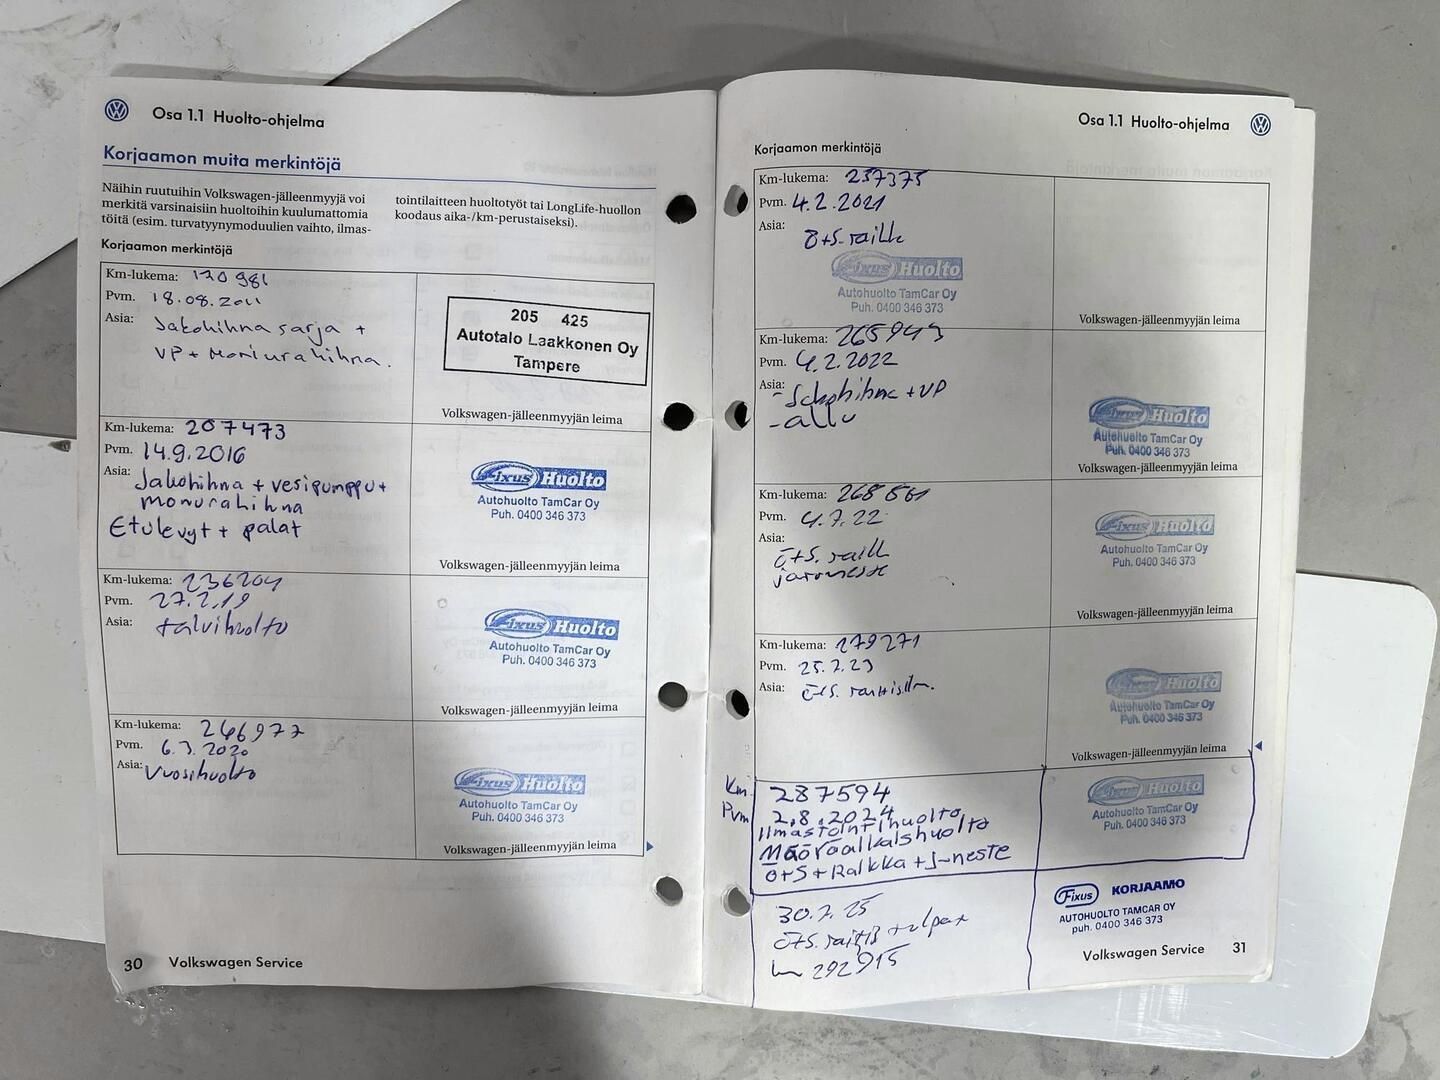 Osa 1.1 Huolto-ohjelma
Korjaamon muita merkintöjä
Näihin ruutuihin Volkswagen-jälleenmyyjä voi
merkitä varsinaisiin huoltoihin kuulumattomia
töitä (esim. turvatyynymoduulien vaihto, ilmas-
tointilaitteen huoltotyöt tai LongLife-huollon
koodaus aika-/km-perustaiseksi).
Korjaamon merkintöjä
Km-lukema: 120 981
Pvm. 18.08.2011
Asia: Jakohihna sarja +
VP + Moniurahihna.
205 425
Autotalo Laakkonen Oy
Tampere
Volkswagen-jälleenmyyjän leima
Km-lukema: 207473
Pvm. 14.9.2016
Asia: Jakohihna + vesipumppu +
monurahihna
Etulevyt + palat
Fixus Huolto
Autohuolto TamCar Oy
Puh. 0400 346 373
Volkswagen-jälleenmyyjän leima
Km-lukema: 236204
Pvm. 27.2.19
Asia: talvihuolto
Fixus Huolto
Autohuolto TamCar Oy
Puh. 0400 346 373
Volkswagen-jälleenmyyjän leima
Km-lukema: 246977
Pvm. 6.3.2020
Asia: Vuosihuolto
Fixus Huolto
Autohuolto TamCar Oy
Puh. 0400 346 373
Volkswagen-jälleenmyyjän leima
30 Volkswagen Service
Osa 1.1 Huolto-ohjelma
Korjaamon merkintöjä
Km-lukema: 257375
Pvm. 4.2.2021
Asia: Ö+S. raikk
Fixus Huolto
Autohuolto TamCar Oy
Puh. 0400 346 373
Volkswagen-jälleenmyyjän leima
Km-lukema: 265943
Pvm. 4.2.2022
Asia: - Jakohihna + VP
Fixus Huolto
Autohuolto TamCar Oy
Puh. 0400 346 373
Volkswagen-jälleenmyyjän leima
Km-lukema: 268561
Pvm. 4.7.22
Asia:
Ö+S. raikk
jarruneste
Fixus Huolto
Autohuolto TamCar Oy
Puh. 0400 346 373
Volkswagen-jälleenmyyjän leima
Km-lukema: 279271
Pvm. 25.7.23
Asia: Ö+S.
Fixus Huolto
Autohuolto TamCar Oy
Puh. 0400 346 373
Volkswagen-jälleenmyyjän leima
Km. 287594
Pvm 2.8.2024
Ilmastointihuolto
Määräaikaishuolto
Ö+S + Raikka + J-neste
Fixus Huolto
Autohuolto TamCar Oy
Puh. 0400 346 373
30.7.25
Ö+S. raitis + ulpat
km 292915
Fixus KORJAAMO
AUTOHUOLTO TAMCAR OY
puh. 0400 346 373
Volkswagen Service 31